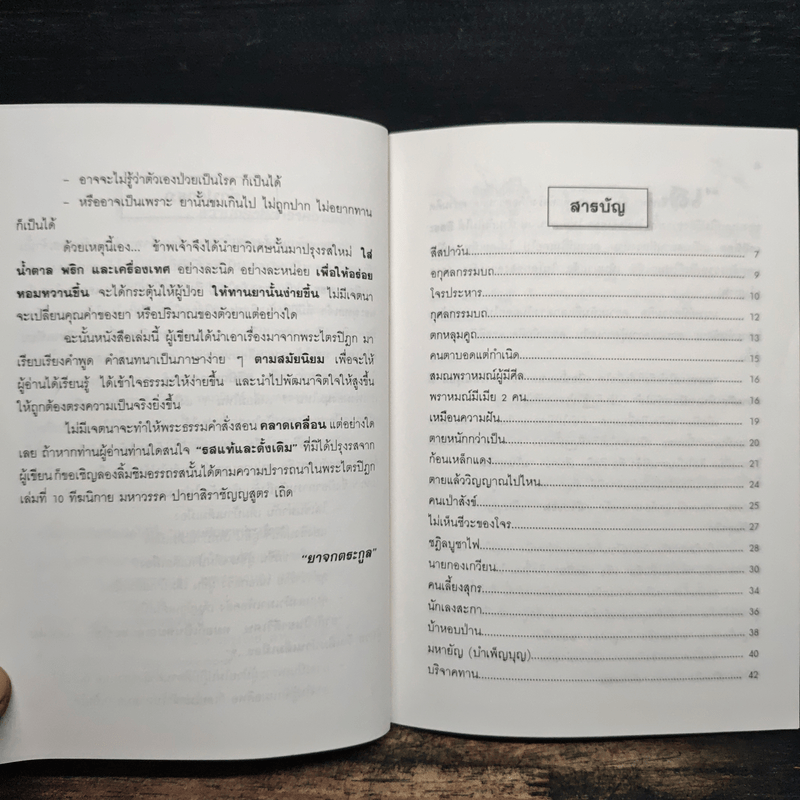 - อาจจะไม่รู้ว่าตัวเองป่วยเป็นโรค ก็เป็นได้
- หรืออาจเป็นเพราะ ยานั้นขมเกินไป ไม่ถูกปาก ไม่อยากทาน
ก็เป็นได้
ด้วยเหตุนี้เอง... ข้าพเจ้าจึงได้นำยาวิเศษนั้นมาปรุงรสใหม่ ใส่
น้ำตาล พริก และเครื่องเทศ อย่างละนิด อย่างละหน่อย เพื่อให้อร่อย
หอมหวานขึ้น จะได้กระตุ้นให้ผู้ป่วย ให้ทานยานั้นง่ายขึ้น ไม่มีเจตนา
จะเปลี่ยนคุณค่าของยา หรือปริมาณของตัวยาแต่อย่างใด
ฉะนั้นหนังสือเล่มนี้ ผู้เขียนได้นำเอาเรื่องมาจากพระไตรปิฎก มา
เรียบเรียงคำพูด คำสนทนาเป็นภาษาง่าย ๆ ตามสมัยนิยม เพื่อจะให้
ผู้อ่านได้เรียนรู้ ได้เข้าใจธรรมะให้ง่ายขึ้น และนำไปพัฒนาจิตใจให้สูงขึ้น
ให้ถูกต้องตรงความเป็นจริงยิ่งขึ้น
ไม่มีเจตนาจะทำให้พระธรรมคำสั่งสอน คลาดเคลื่อน แต่อย่างใด
เลย ถ้าหากท่านผู้อ่านท่านใดสนใจ "รสแท้และดั้งเดิม" ที่มิได้ปรุงรสจาก
ผู้เขียน ก็ขอเชิญลองลิ้มชิมอรรถรสนั้นได้ตามความปรารถนาในพระไตรปิฎก
เล่มที่ 10 ทีฆนิกาย มหาวรรค ปายาสิราชัญญสูตร เถิด
"ยาจกตระกูล"
สารบัญ
สีสปาวัน 7
อกุศลกรรมบถ 9
โจรประหาร 10
กุศลกรรมบถ 12
ตกหลุมคูถ 13
คนตาบอดแต่กำเนิด 15
สมณพราหมณ์ผู้มีศีล 16
พราหมณ์มีเมีย 2 คน 18
เหมือนความฝัน 19
ตายหนักกว่าเป็น 20
ก้อนเหล็กแดง 21
ตายแล้ววิญญาณไปไหน 24
คนเป่าสังข์ 25
ไม่เห็นชีวะของโจร 27
ชฎิลบูชาไฟ 28
นายกองเกวียน 30
คนเลี้ยงสุกร 34
นักเลงสะกา 36
บ้าหอบป่าน 38
มหายัญ (บำเพ็ญบุญ) 40
บริจาคทาน 42